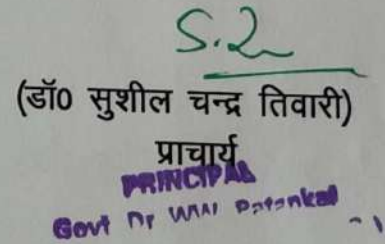 (डॉ0 सुशील चन्द्र तिवारी)
प्राचार्य
PRINCIPAL
Govt Dr WW Patankal